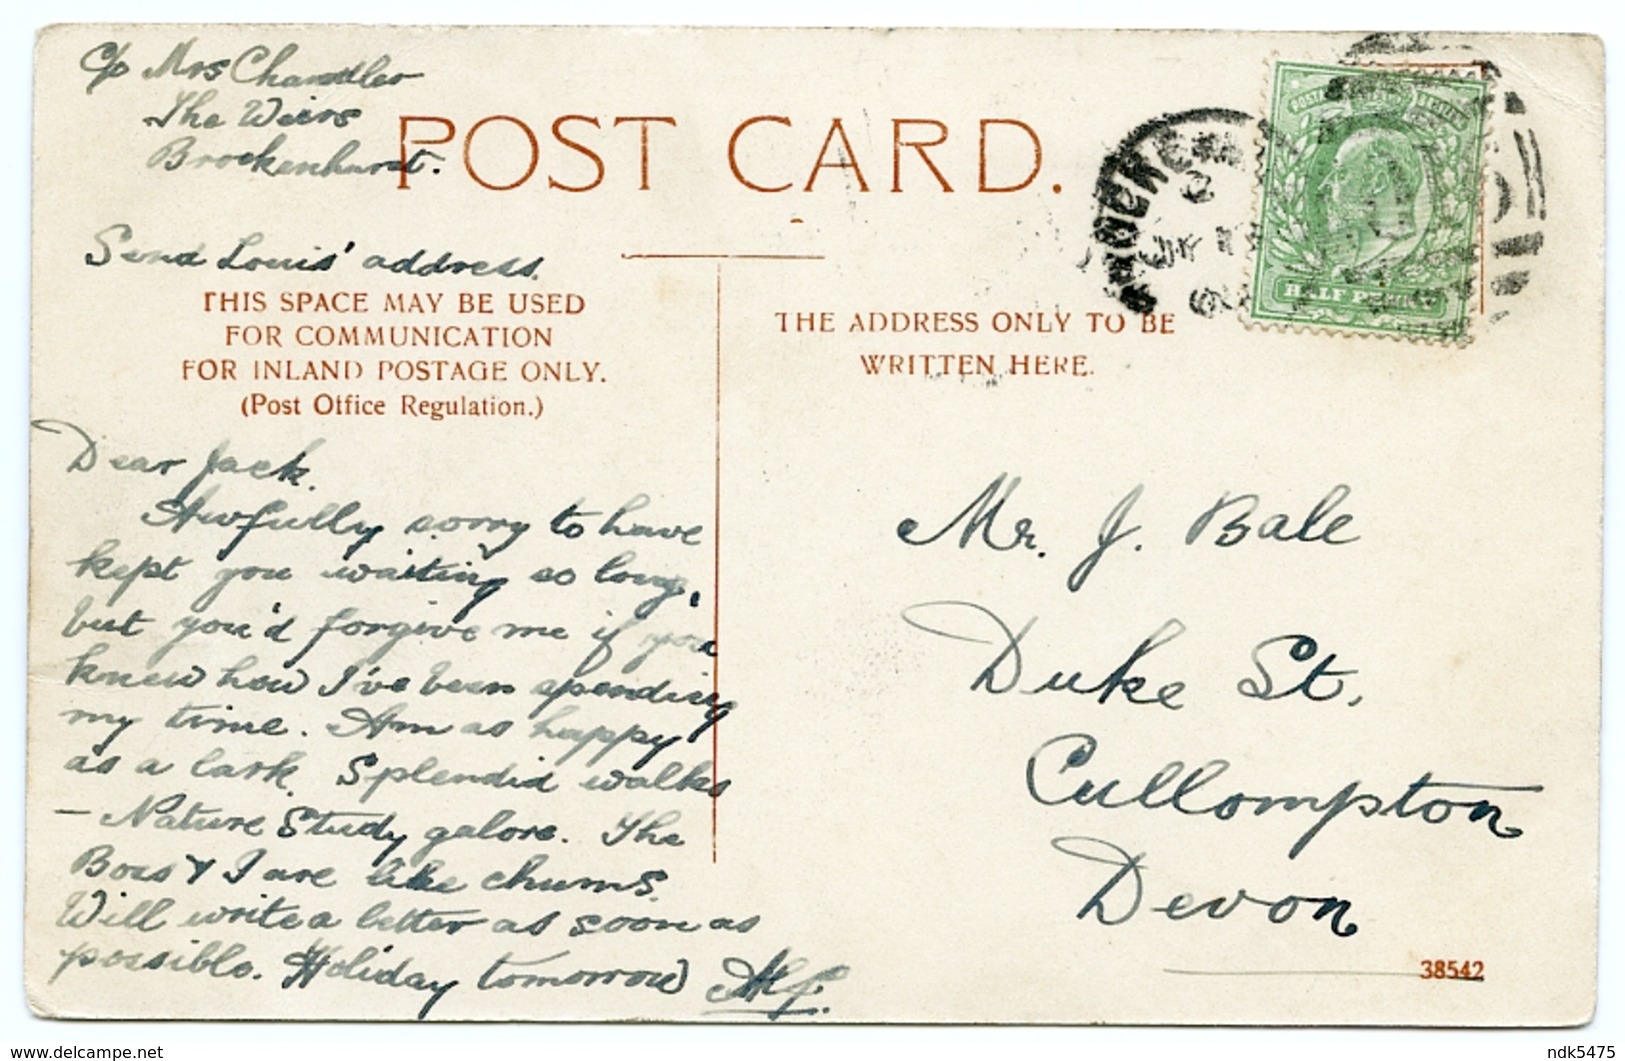 c/o Mrs Chandler
The Weirs
Brockenhurst.
POST CARD.
Send Louis' address.
THIS SPACE MAY BE USED
FOR COMMUNICATION
FOR INLAND POSTAGE ONLY.
(Post Office Regulation.)
Dear Jack.
Awfully sorry to have
kept you waiting so long,
but you'd forgive me if you
knew how I've been spending
my time. Am as happy
as a lark. Splendid walks
— Nature Study galore. The
Boss & I are like chums.
Will write a letter as soon as
possible. Holiday tomorrow Alf.
THE ADDRESS ONLY TO BE
WRITTEN HERE.
HALF PENNY
Mr. J. Bale
Duke St,
Cullompton
Devon
38542
www.delcampe.net
ndk5475